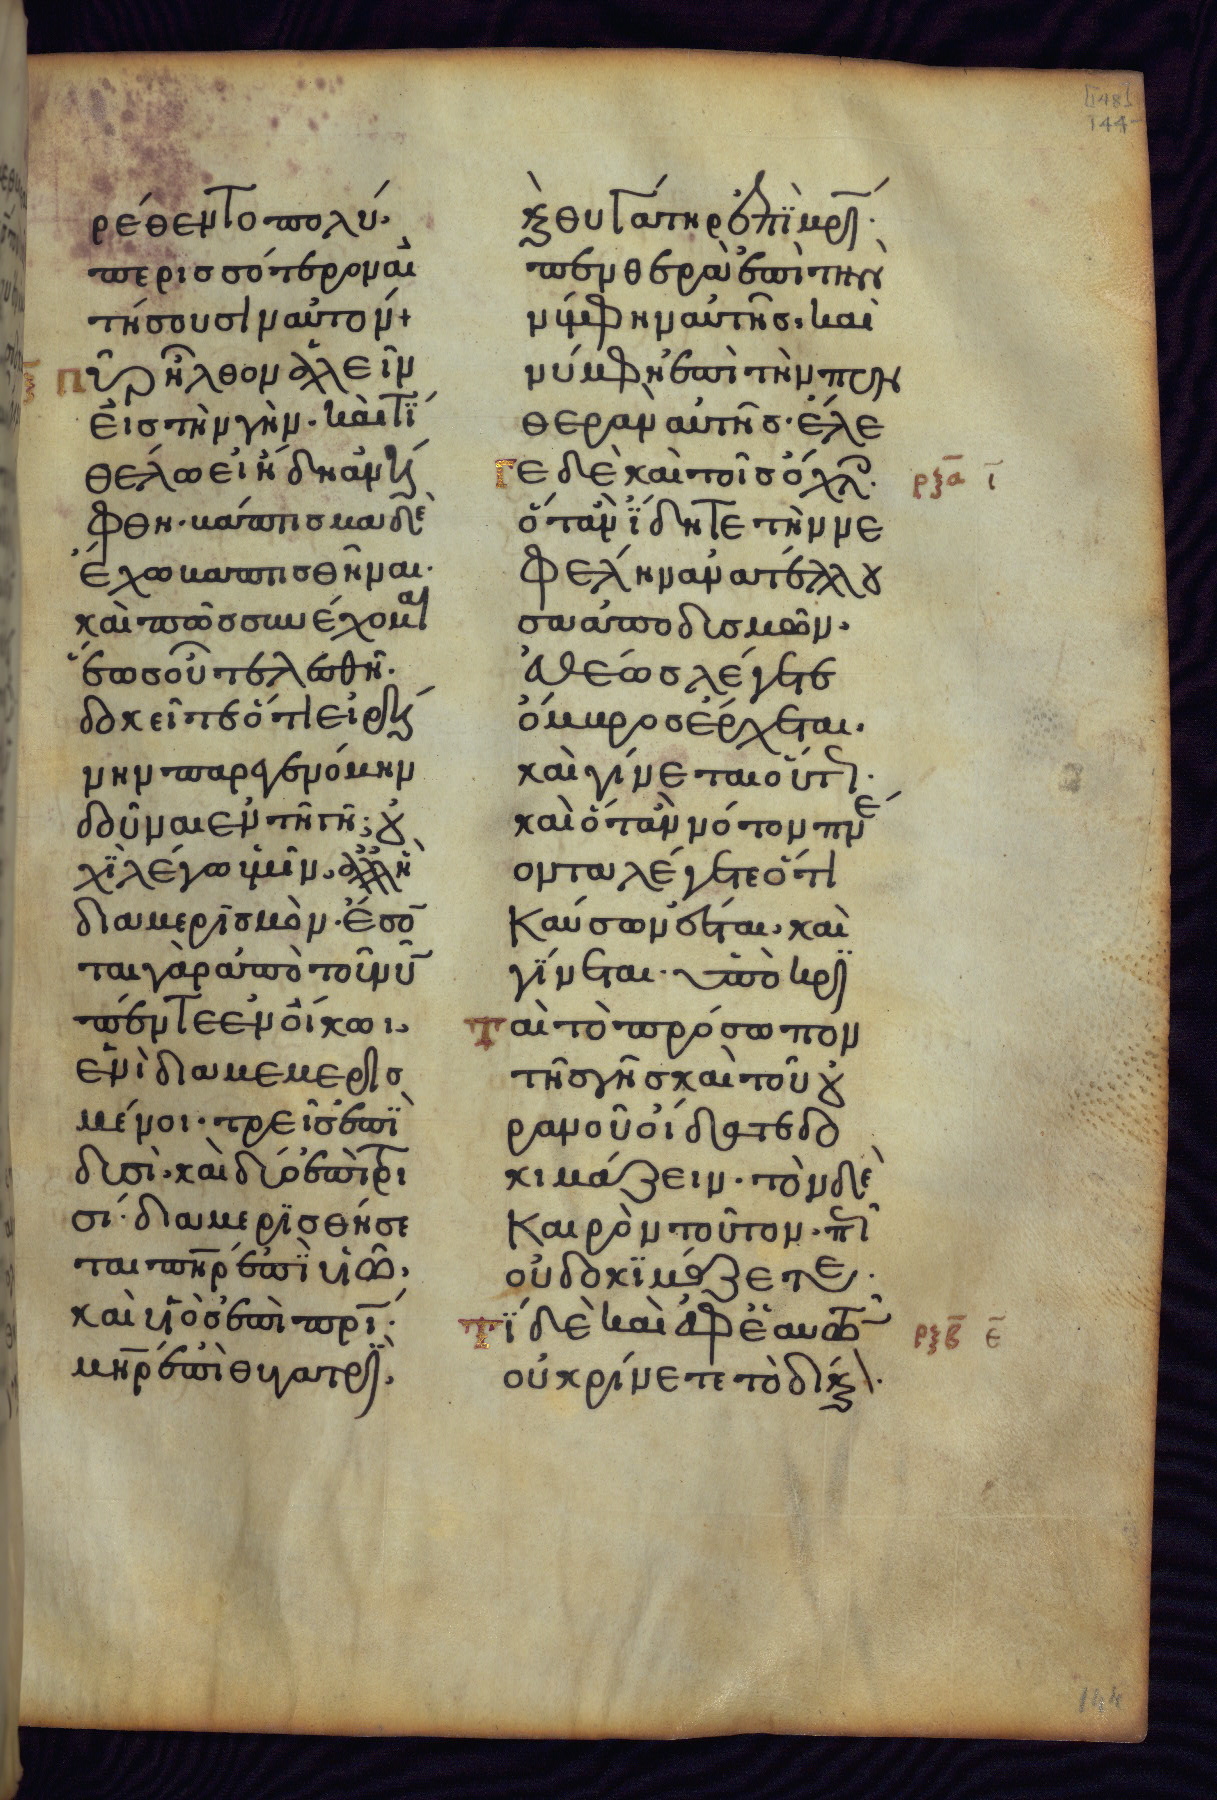 [148]
144
ρέθεντο πολύ·
περισσότερον αἰ
τήσουσιν αὐτόν +
Πῦρ ἦλθον βαλεῖν
εἰς τὴν γῆν· καὶ τί
θέλω εἰ ἤδη ἀνή
φθη· βάπτισμα δὲ
ἔχω βαπτισθῆναι·
καὶ πῶς συνέχομαι
ἕως οὗ τελεσθῆ·
δοκεῖτε ὅτι εἰρή
νην παρεγενόμην
δοῦναι ἐν τῆ γῆ; οὐ
χὶ λέγω ὑμῖν· ἀλλ' ἢ
διαμερισμόν· ἔσο
ται γὰρ ἀπὸ τοῦ νῦ
πέντε ἐν οἴκωι
ἑνὶ διαμεμερισ
μένοι· τρεῖς ἐπὶ
δυσὶ· καὶ δύο ἐπὶ τρι
σί· διαμερισθήσε
ται πηρ ἐπὶ υἱῶ·
καὶ υἱὸς ἐπὶ πρι·
μηρ ἐπὶ θυγατρὶ·
καὶ θυγάτηρ ἐπὶ μρι·
πενθερὰ ἐπὶ τὴν
νύμφην αὐτῆς· καὶ
νύμφη ἐπὶ τὴν πεν
θερὰν αὐτῆς· ἔλε
γε δὲ καὶ τοῖς ὄχλοις·
ὅταν ἴδητε τὴν νε
φέλην ἀνατέλλου
σαν ἀπὸ δυσμῶν·
εὐθέως λέγετε
ὄμβρος ἔρχεται·
καὶ γίνεται οὕτως·
καὶ ὅταν νότον πνέ
οντα λέγετε ὅτι
καύσων ἔσται· καὶ
γίνεται· ὑποκρι
ταὶ τὸ πρόσωπον
τῆς γῆς καὶ τοῦ οὐ
ρανοῦ οἴδατε δο
κιμάζειν· τὸν δὲ
καιρὸν τοῦτον· πῶς
οὐ δοκιμάζετε·
Τί δὲ καὶ ἀφ' ἑαυτῶν
οὐ κρίνετε τὸ δίκαιον·
ρξα ι
ρξβ ε
144